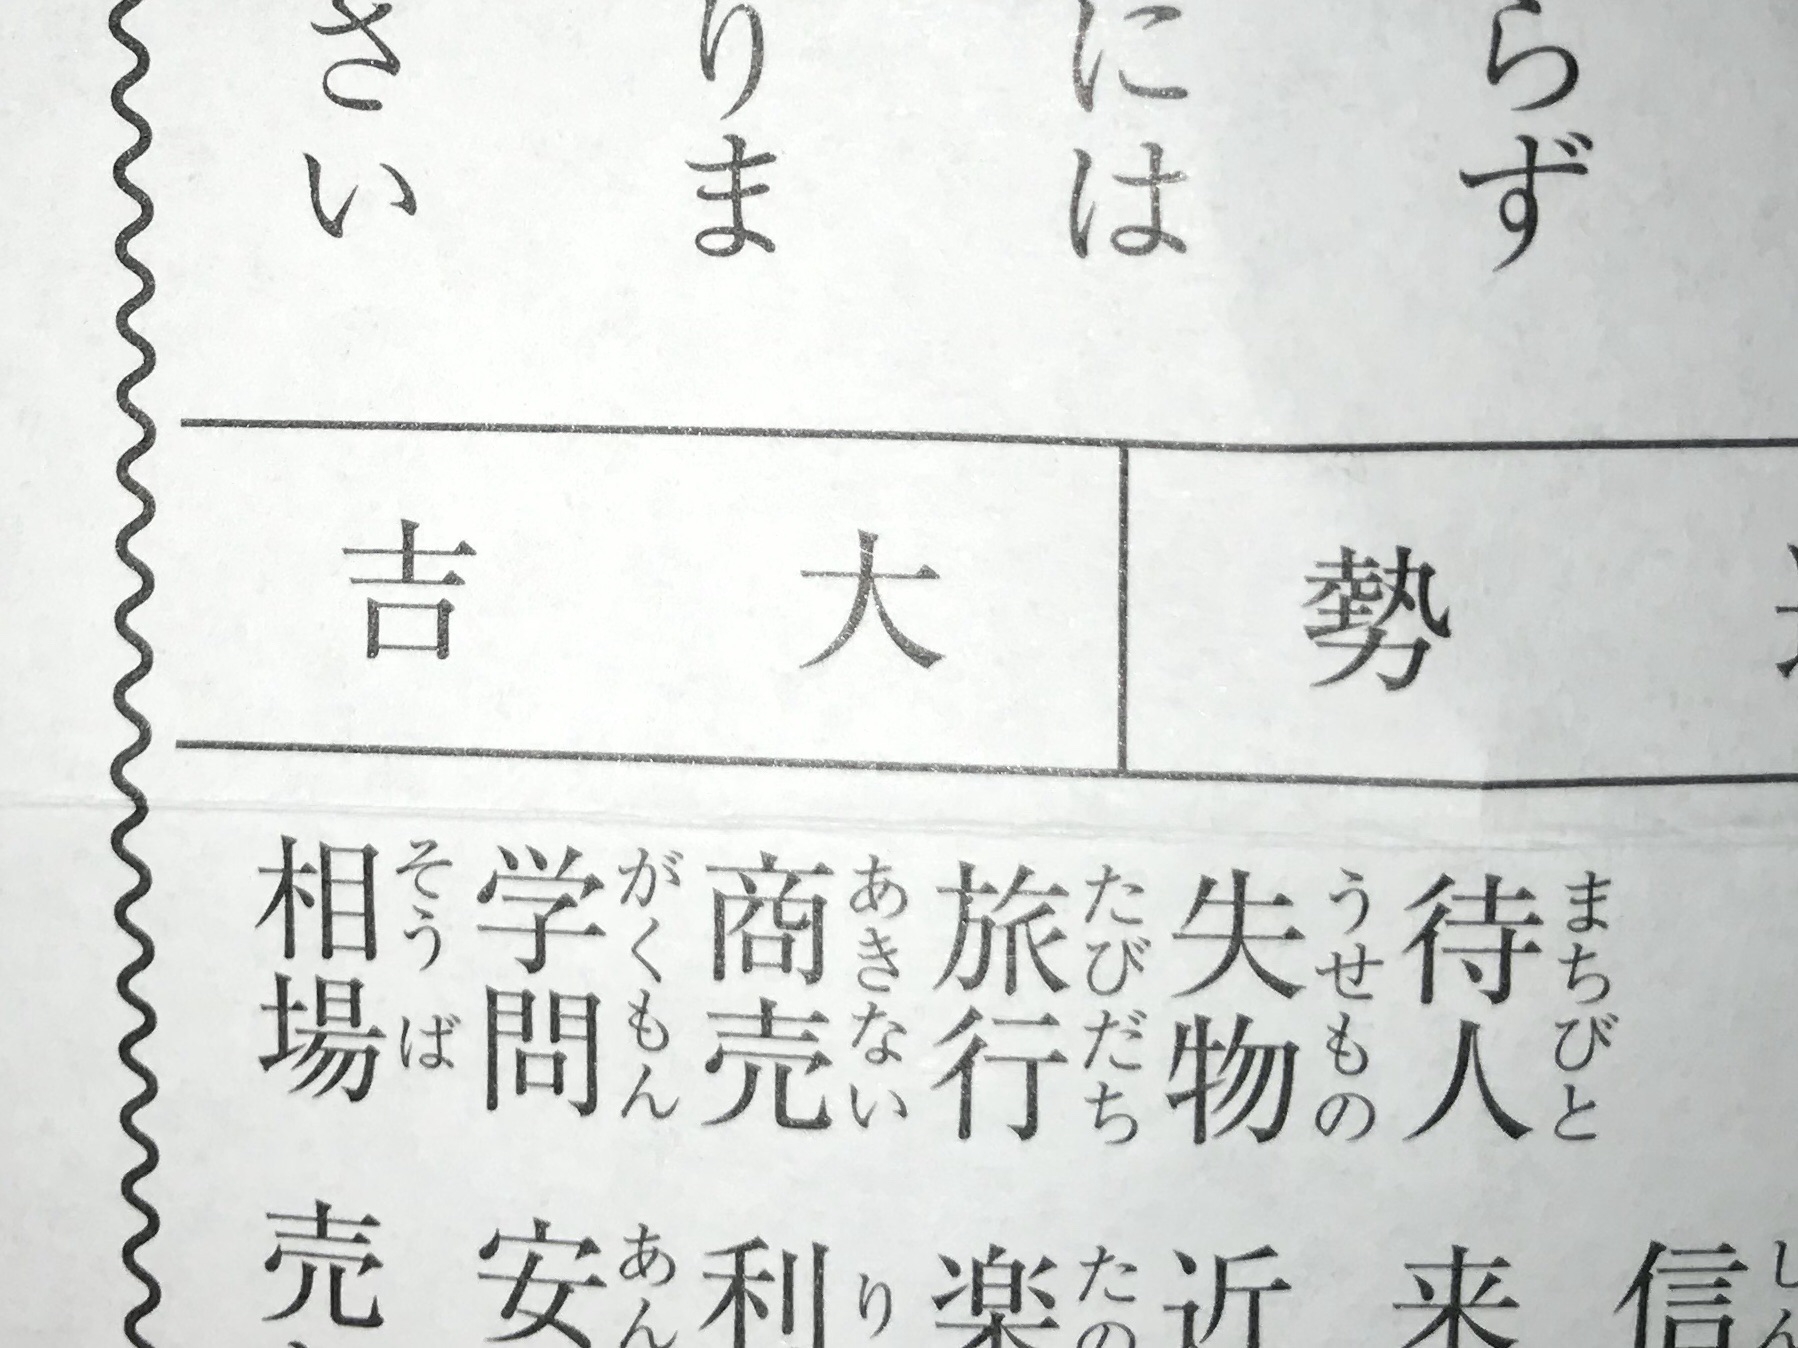 らず
には
りま
さい
勢
大吉
信
しん
まちびと
待人 来
うせもの
失物 近
たびだち たの
旅行 楽
あきない り
商売 利
がくもん あん
学問 安
そうば
相場 売